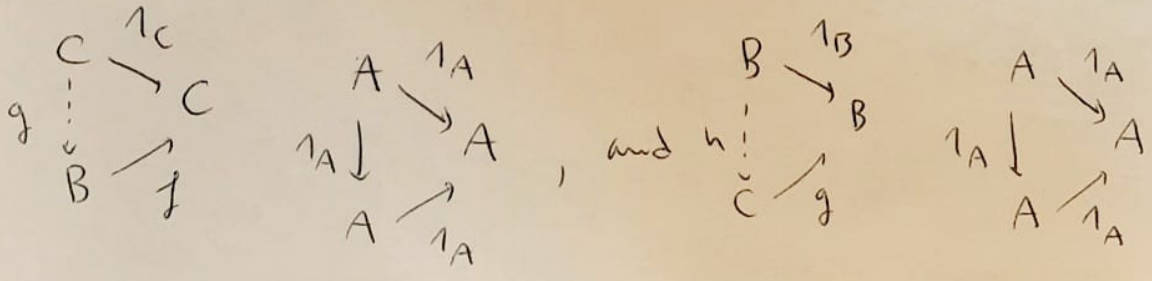 C 1_C C g B f
A 1_A A 1_A A 1_A
, and
B 1_B B h C g
A 1_A A 1_A A 1_A